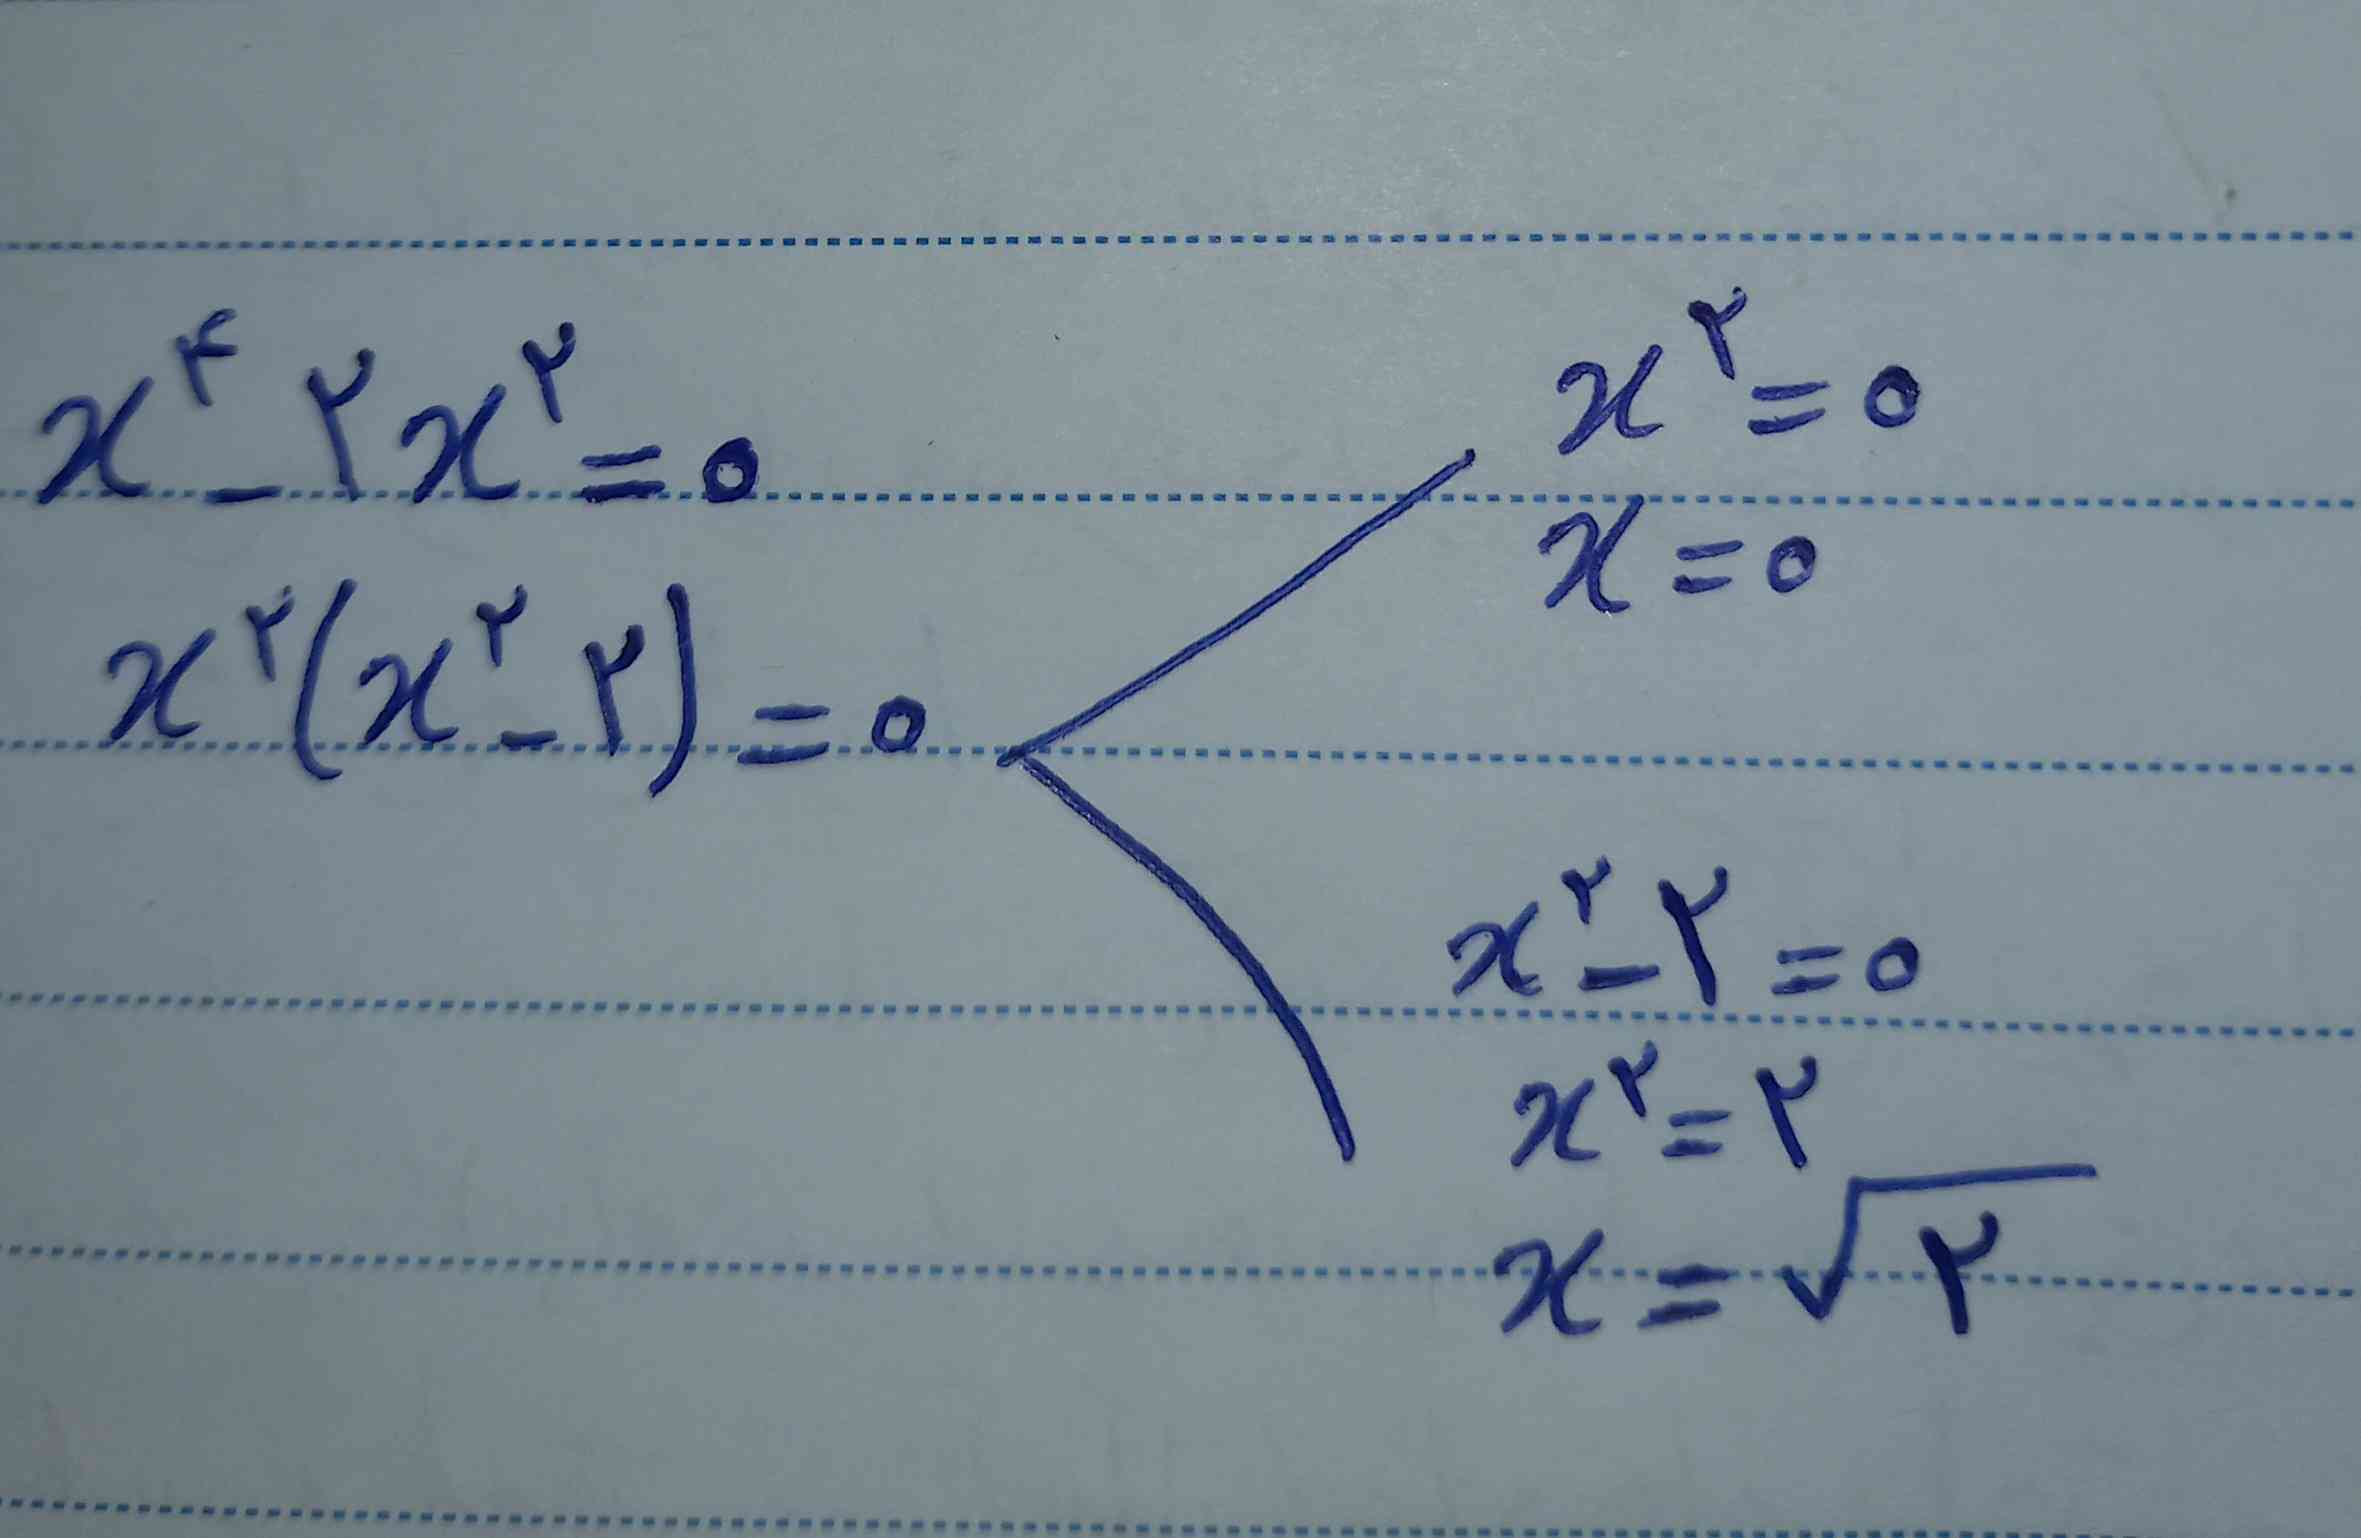 x^۴ - ۲x^۲ = ۰
x^۲(x^۲ - ۲) = ۰
x^۲ = ۰
x = ۰
x^۲ - ۲ = ۰
x^۲ = ۲
x = √۲